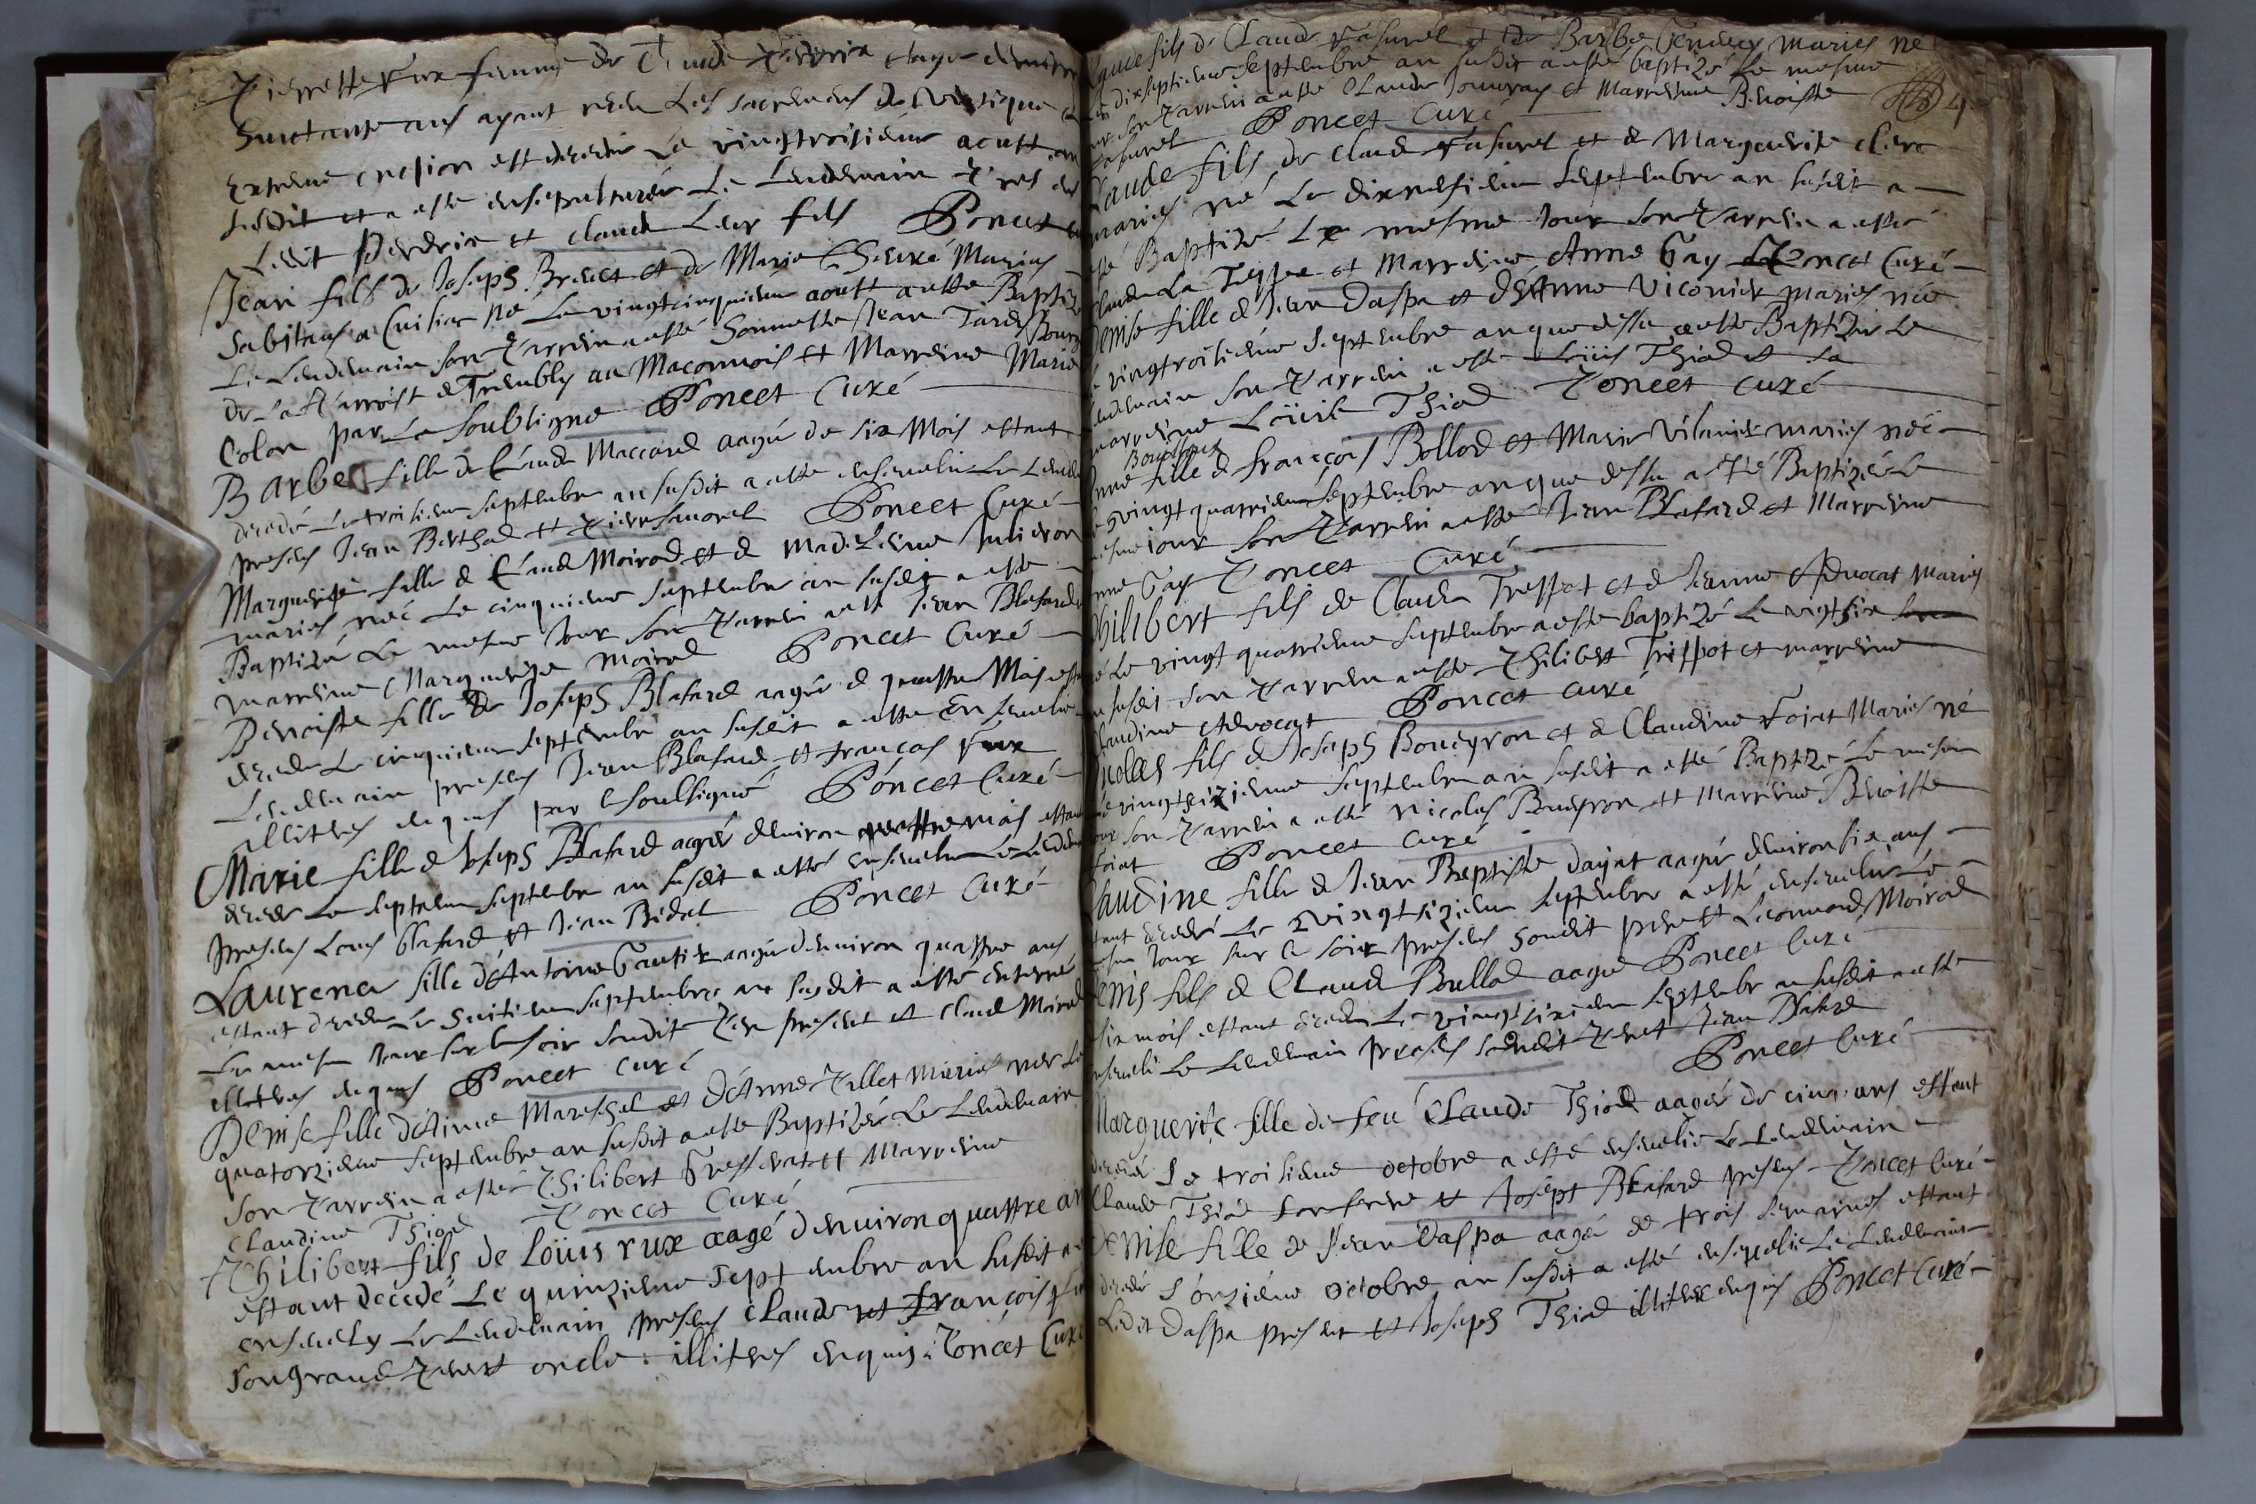 Pierrette Rux femme de Claude Perdrix aagee denviron
Soixtante ans ayant receu Les sacremens de
Extreme onction est decedée Le vingtroisieme aoust an
susdit et a esté ensepulturée Le Lendemain
Ledit Perdrix et claude Leur fils Poncet
Jean fils de Joseph Brunet et de Marie Mariés
habitans a Cuisiac Né Le vingtcinquieme aoust a esté Baptizé
Le Lendemain son Parrein a esté honneste Jean Tardy Bourg
de La Parroist de Trembly au Maconnois et Marreine Marie
Colon par Le Soubsigne Poncet Curé
Barbe fille de Claude Maccard aagée de six Mois estant
decedée Le troisieme septembre an susdit a esté ensevelie Le Lende
presens Jean Berthod et Pierre Poncet Curé
Marguerite fille de Claude Moirod et de Madeleine Julieron
mariés née Le cinquieme septembre an susdit a esté
Baptizée Le mesme Jour son Parrein a esté Jean Blafard
marreine Marguerite Moirod Poncet Curé
Benoiste fille de Joseph Blafard aagée de quattre Mois estant
decedée Le cinquieme septembre an susdit a esté Ensevelie
Lendemain presens Jean Blafard et françois Rux
illitres enquis par le soubsigné Poncet Curé
Marie fille de Joseph Blafard aagée denviron quattre mois estant
decedée Le septieme septembre an susdit a esté ensevelie Le Lendem
presens Louis blafard et Jean Bidat Poncet Curé
Laurence fille d'Antoine Gautier aagée denviron quattre ans
estant decedée Le huitieme septembre an susdit a esté enterrée
Le mesme Jour sur le soir sondit Pere present et Claude Moirod
illitres enquis Poncet curé
Denise fille d'Aime Mareschal et d'Anne Pillet Mariés née Le
quatorzieme septembre an susdit a esté Baptizée Le Lendemain
son Parrein a esté Philibert et Marreine
Claudine Thiod Poncet Curé
Philibert fils de Loüis rux aagé denviron quattre ans
estant decedé Le quinzieme septembre an susdit a
ensevely Le Lendemain presens Claude et françois
son grand Pere et oncle illitres enquis Poncet Curé
fils de Claude et de Barbe mariés né
Le dixseptieme septembre an susdit a esté baptizé Le mesme
jour son Parrein a esté Claude et Marreine Benoiste
Poncet Curé
Claude fils de Claude et de Marguerite clerc
mariés né Le dixneufieme septembre an susdit a
esté Baptizé Le mesme Jour son Parrein a esté
Claude La Teppe et Marreine Anne Gay Poncet Curé
Denise fille de Jean Daspa et d'Anne Viconier mariés née
Le vingtroisieme septembre an que dessu a esté Baptizée Le
Lendemain son Parrein a esté Loüis Thiod et sa
marreine Loüise Thiod Poncet curé
Anne fille de françois Bollod et Marie mariés née
Le vingt quatrieme septembre an que dessu a esté Baptizée Le
mesme iour son Parrein a esté Jean Blafard et Marreine
Anne Gay Poncet Curé
Philibert fils de Claude Treppot et de Jeanne Advocat Mariés
né Le vingt quatrieme septembre a esté baptizé Le vingtsix
an susdit son Parrein a esté Philibert Treppot et marreine
Claudine Advocat Poncet curé
Nicolas fils de Joseph Boneyron et de Claudine Foiat Mariés né
Le vingtsizieme septembre an susdit a esté Baptizé Le mesme
jour son Parrein a esté Nicolas Boneyron et Marreine Benoiste
foiat Poncet curé
Claudine fille de Jean Baptiste dayat aagée denviron six ans
estant decedée Le vingtsizieme septembre a esté ensevelie Le
mesme Jour sur le soir presens sondit pere et Leonnard Moirod
Denis fils de Claude Bullod aagé Poncet Curé
six mois estant decedé Le vingtsizieme septembre an susdit a esté
enseveli Le Lendemain presens sondit Pere et Jean Blafard
Poncet Curé
Marguerite fille de feu Claude Thiod aagée de cinq ans estant
decedée Le troisieme octobre a esté ensevelie Le Lendemain
Claude Thiod son frere et Joseph Blafard presens Poncet Curé
Denise fille de Jean Daspa aagée de trois semaines estant
decedée L'onzieme octobre an susdit a esté ensevelie Le Lendemain
Ledit Daspa present et Joseph Thiod illitres enquis Poncet Curé